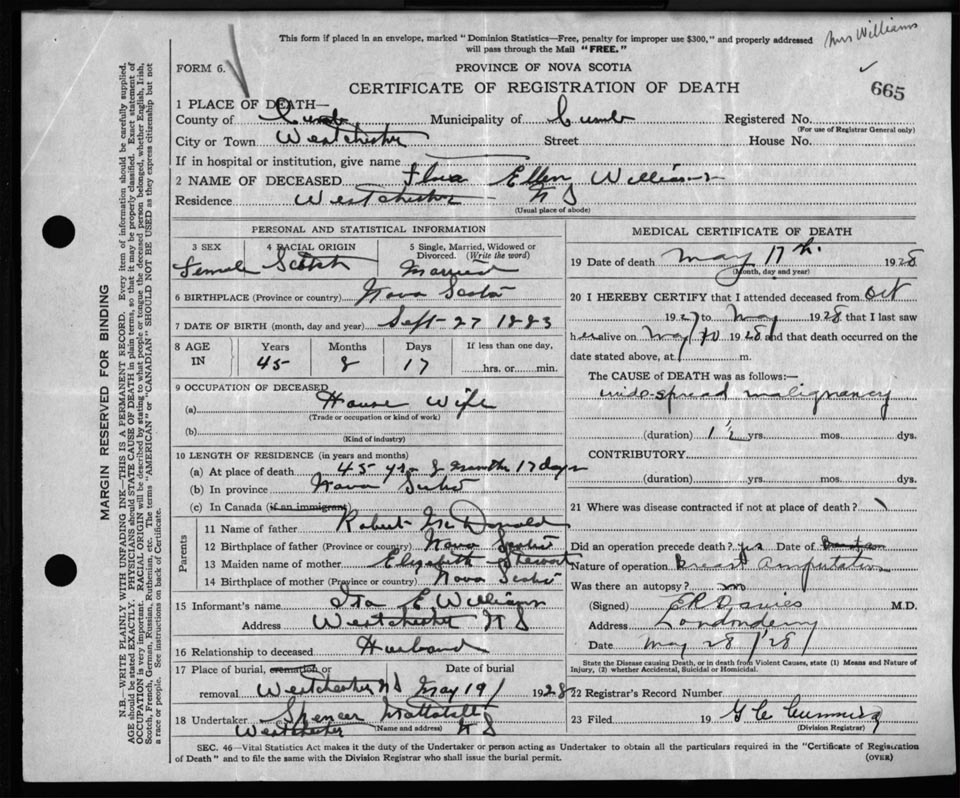 This form if placed in an envelope, marked "Dominion Statistics—Free, penalty for improper use $300," and properly addressed
will pass through the Mail "FREE."
Mrs Williams
FORM 6.
PROVINCE OF NOVA SCOTIA
CERTIFICATE OF REGISTRATION OF DEATH
665
1 PLACE OF DEATH—
County of Cumb Municipality of Cumb Registered No.
(For use of Registrar General only)
City or Town Westchester Street House No.
If in hospital or institution, give name
2 NAME OF DECEASED Flora Ellen Williams
Residence Westchester N S
(Usual place of abode)
PERSONAL AND STATISTICAL INFORMATION
3 SEX 4 RACIAL ORIGIN 5 Single, Married, Widowed or Divorced. (Write the word)
Female Scotch Married
6 BIRTHPLACE (Province or country) Nova Scotia
7 DATE OF BIRTH (month, day and year) Sept 27 1883
8 AGE IN Years Months Days If less than one day,
45 8 17 hrs. or min.
9 OCCUPATION OF DECEASED
(a) House Wife
(Trade or occupation or kind of work)
(b)
(Kind of industry)
10 LENGTH OF RESIDENCE (in years and months)
(a) At place of death 45 yrs 8 months 17 days
(b) In province Nova Scotia
(c) In Canada (if an immigrant)
Parents
11 Name of father Robert McDonald
12 Birthplace of father (Province or country) Nova Scotia
13 Maiden name of mother Elizabeth Stewart
14 Birthplace of mother (Province or country) Nova Scotia
15 Informant's name Ira E Williams
Address Westchester N S
16 Relationship to deceased Husband
17 Place of burial, cremation or Date of burial
removal Westchester N S May 19 1928
18 Undertaker Spencer
(Name and address)
Westchester N S
MEDICAL CERTIFICATE OF DEATH
19 Date of death May 17th 1928
(Month, day and year)
20 I HEREBY CERTIFY that I attended deceased from Oct
1927 to May 1928 that I last saw
her alive on May 10 1928 and that death occurred on the
date stated above, at m.
The CAUSE of DEATH was as follows:—
wide-spread malignancy
(duration) 1½ yrs. mos. dys.
CONTRIBUTORY
(duration) yrs. mos. dys.
21 Where was disease contracted if not at place of death?
Did an operation precede death? yes Date of
Nature of operation Breast Amputation
Was there an autopsy? no
(Signed) E R Davies M.D.
Address Londonderry
Date May 28/28
State the Disease causing Death, or in death from Violent Causes, state (1) Means and Nature of
Injury, (2) whether Accidental, Suicidal or Homicidal.
22 Registrar's Record Number
23 Filed 19 G C Cumming
(Division Registrar)
SEC. 46—Vital Statistics Act makes it the duty of the Undertaker or person acting as Undertaker to obtain all the particulars required in the "Certificate of Registration
of Death" and to file the same with the Division Registrar who shall issue the burial permit.
(OVER)
MARGIN RESERVED FOR BINDING
N.B.—WRITE PLAINLY WITH UNFADING INK—THIS IS A PERMANENT RECORD. Every item of information should be carefully supplied.
AGE should be stated EXACTLY. PHYSICIANS should STATE CAUSE OF DEATH in plain terms, so that it may be properly classified. Exact statement of
OCCUPATION is very important. RACIAL ORIGIN will be described by stating to what people or tongue the deceased person belonged, whether English, Irish,
Scotch, French, German, Russian, Ruthenian, etc. The terms "AMERICAN" or "CANADIAN" SHOULD NOT BE USED as they express citizenship but not
a race or people. See instructions on back of Certificate.